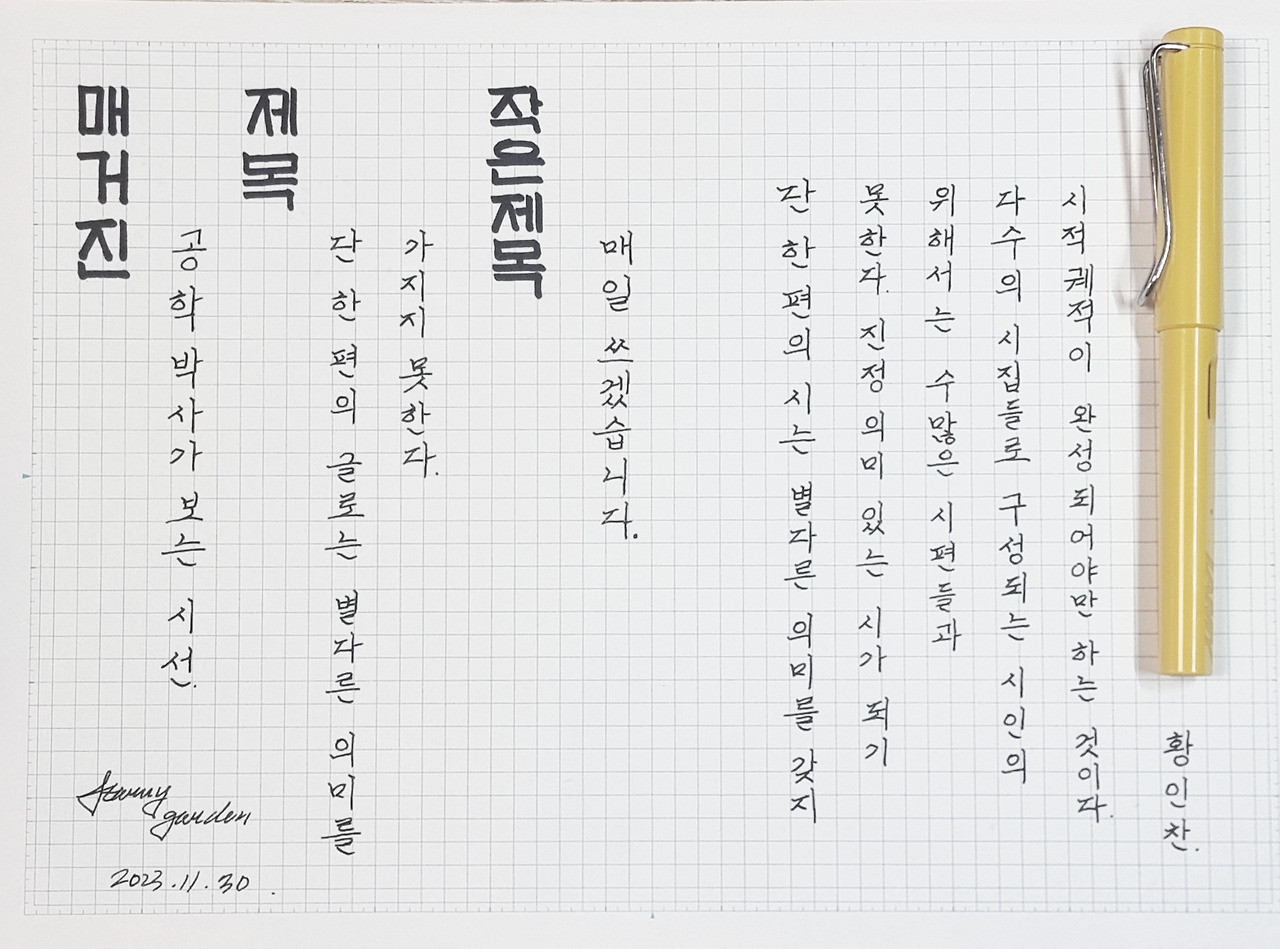 매거진
공학박사가 보는 시선.
제목
단 한 편의 글로는 별다른 의미를
가지지 못한다.
작은제목
매일 쓰겠습니다.
단 한 편의 시는 별다른 의미를 갖지
못한다. 진정 의미 있는 시가 되기
위해서는 수많은 시편들과
다수의 시집들로 구성되는 시인의
시적 궤적이 완성되어야만 하는 것이다.
황인찬.
Starry
garden
2023.11.30.